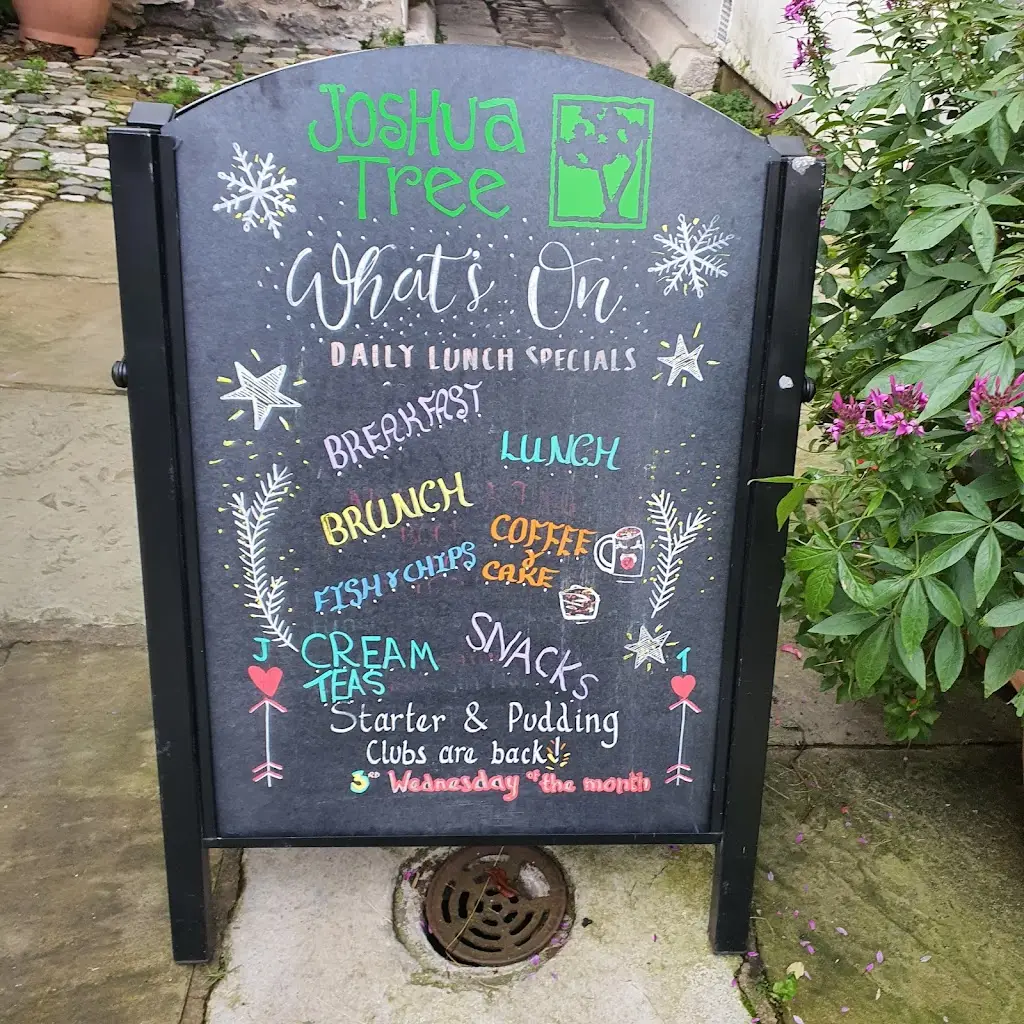 JOSHUA
TREE
What's On
DAILY LUNCH SPECIALS
BREAKFAST
LUNCH
BRUNCH
COFFEE
&
CAKE
FISH & CHIPS
J
CREAM
TEAS
SNACKS
T
Starter & Pudding
Clubs are back!
3RD Wednesday of the month